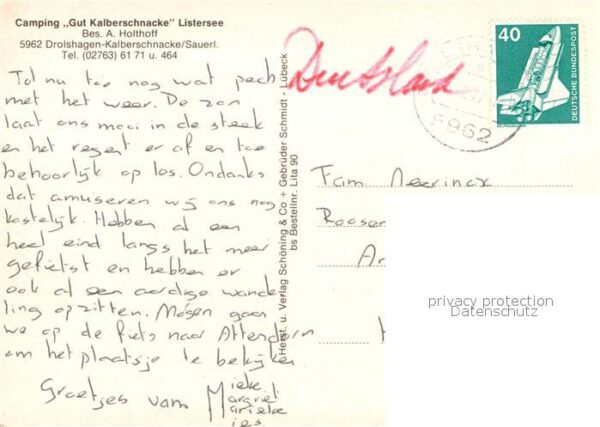 Camping „Gut Kalberschnacke" Listersee
Bes. A. Holthoff
5962 Drolshagen-Kalberschnacke/Sauerl.
Tel. (02763) 61 71 u. 464
Tot nu toe nog wat pech
met het weer. De zon
laat ons mooi in de steek
en het regent er af en toe
behoorlijk op los. Ondanks
dat amuseren wij ons nog
kostelijk. Hebben al een
heel eind langs het meer
gefietst en hebben er
ook al een aardige wande
ling opzitten. Mogen gaan
we op de fiets naar Attendorn
om het plaatsje te bekijken
Groetjes van Mieke
Margriet
Marieke
Herst. u. Verlag Schöning & Co + Gebrüder Schmidt - Lübeck
bs Bestellnr. Lita 90
Deutsland
40
DEUTSCHE BUNDESPOST
5962
Fam Neerincx
Roosen
privacy protection
Datenschutz